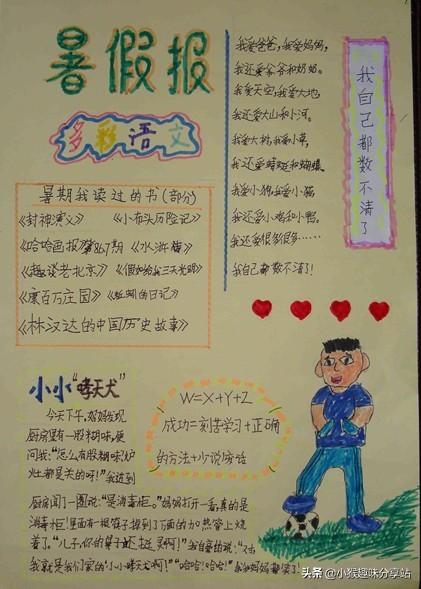 暑假报
多彩语文
暑期我读过的书(部分)
《封神演义》 《小布头历险记》
《哈哈画报》第867期 《水浒传》
《趣谈老北京》 《假如给我三天光明》
《康百万庄园》 《蚯蚓的日记》
《林汉达的中国历史故事》
我自己都数不清了
我爱爸爸，我爱妈妈，
我还爱爷爷和奶奶。
我爱天空，我爱大地，
我还爱大山和小河。
我爱大树，我爱小草，
我还爱蜻蜓和蝴蝶。
我爱小狗，我爱小猫
我还爱小鸡和小鸭，
我还爱很多很多……
我自己都数不清了！
小小“哮天犬”
今天下午，妈妈发现
厨房里有一股糊味，便
问我：“怎么有股糊味？炉
灶都是关的呀！”我进到
厨房闻了一圈说：“是消毒柜。”妈妈打开一看，真的是
消毒柜！里面有一根筷子掉到了下面的加热管上烧
着了。“儿子，你的鼻子还挺灵啊！”我自豪的说：“
我就是我们家的‘小小哮天犬’啊！”“哈哈！哈哈！”我和妈妈都笑了！
W=X+Y+Z
成功=刻苦学习+正确
的方法+少说废话
头条 @小猴趣味分享站